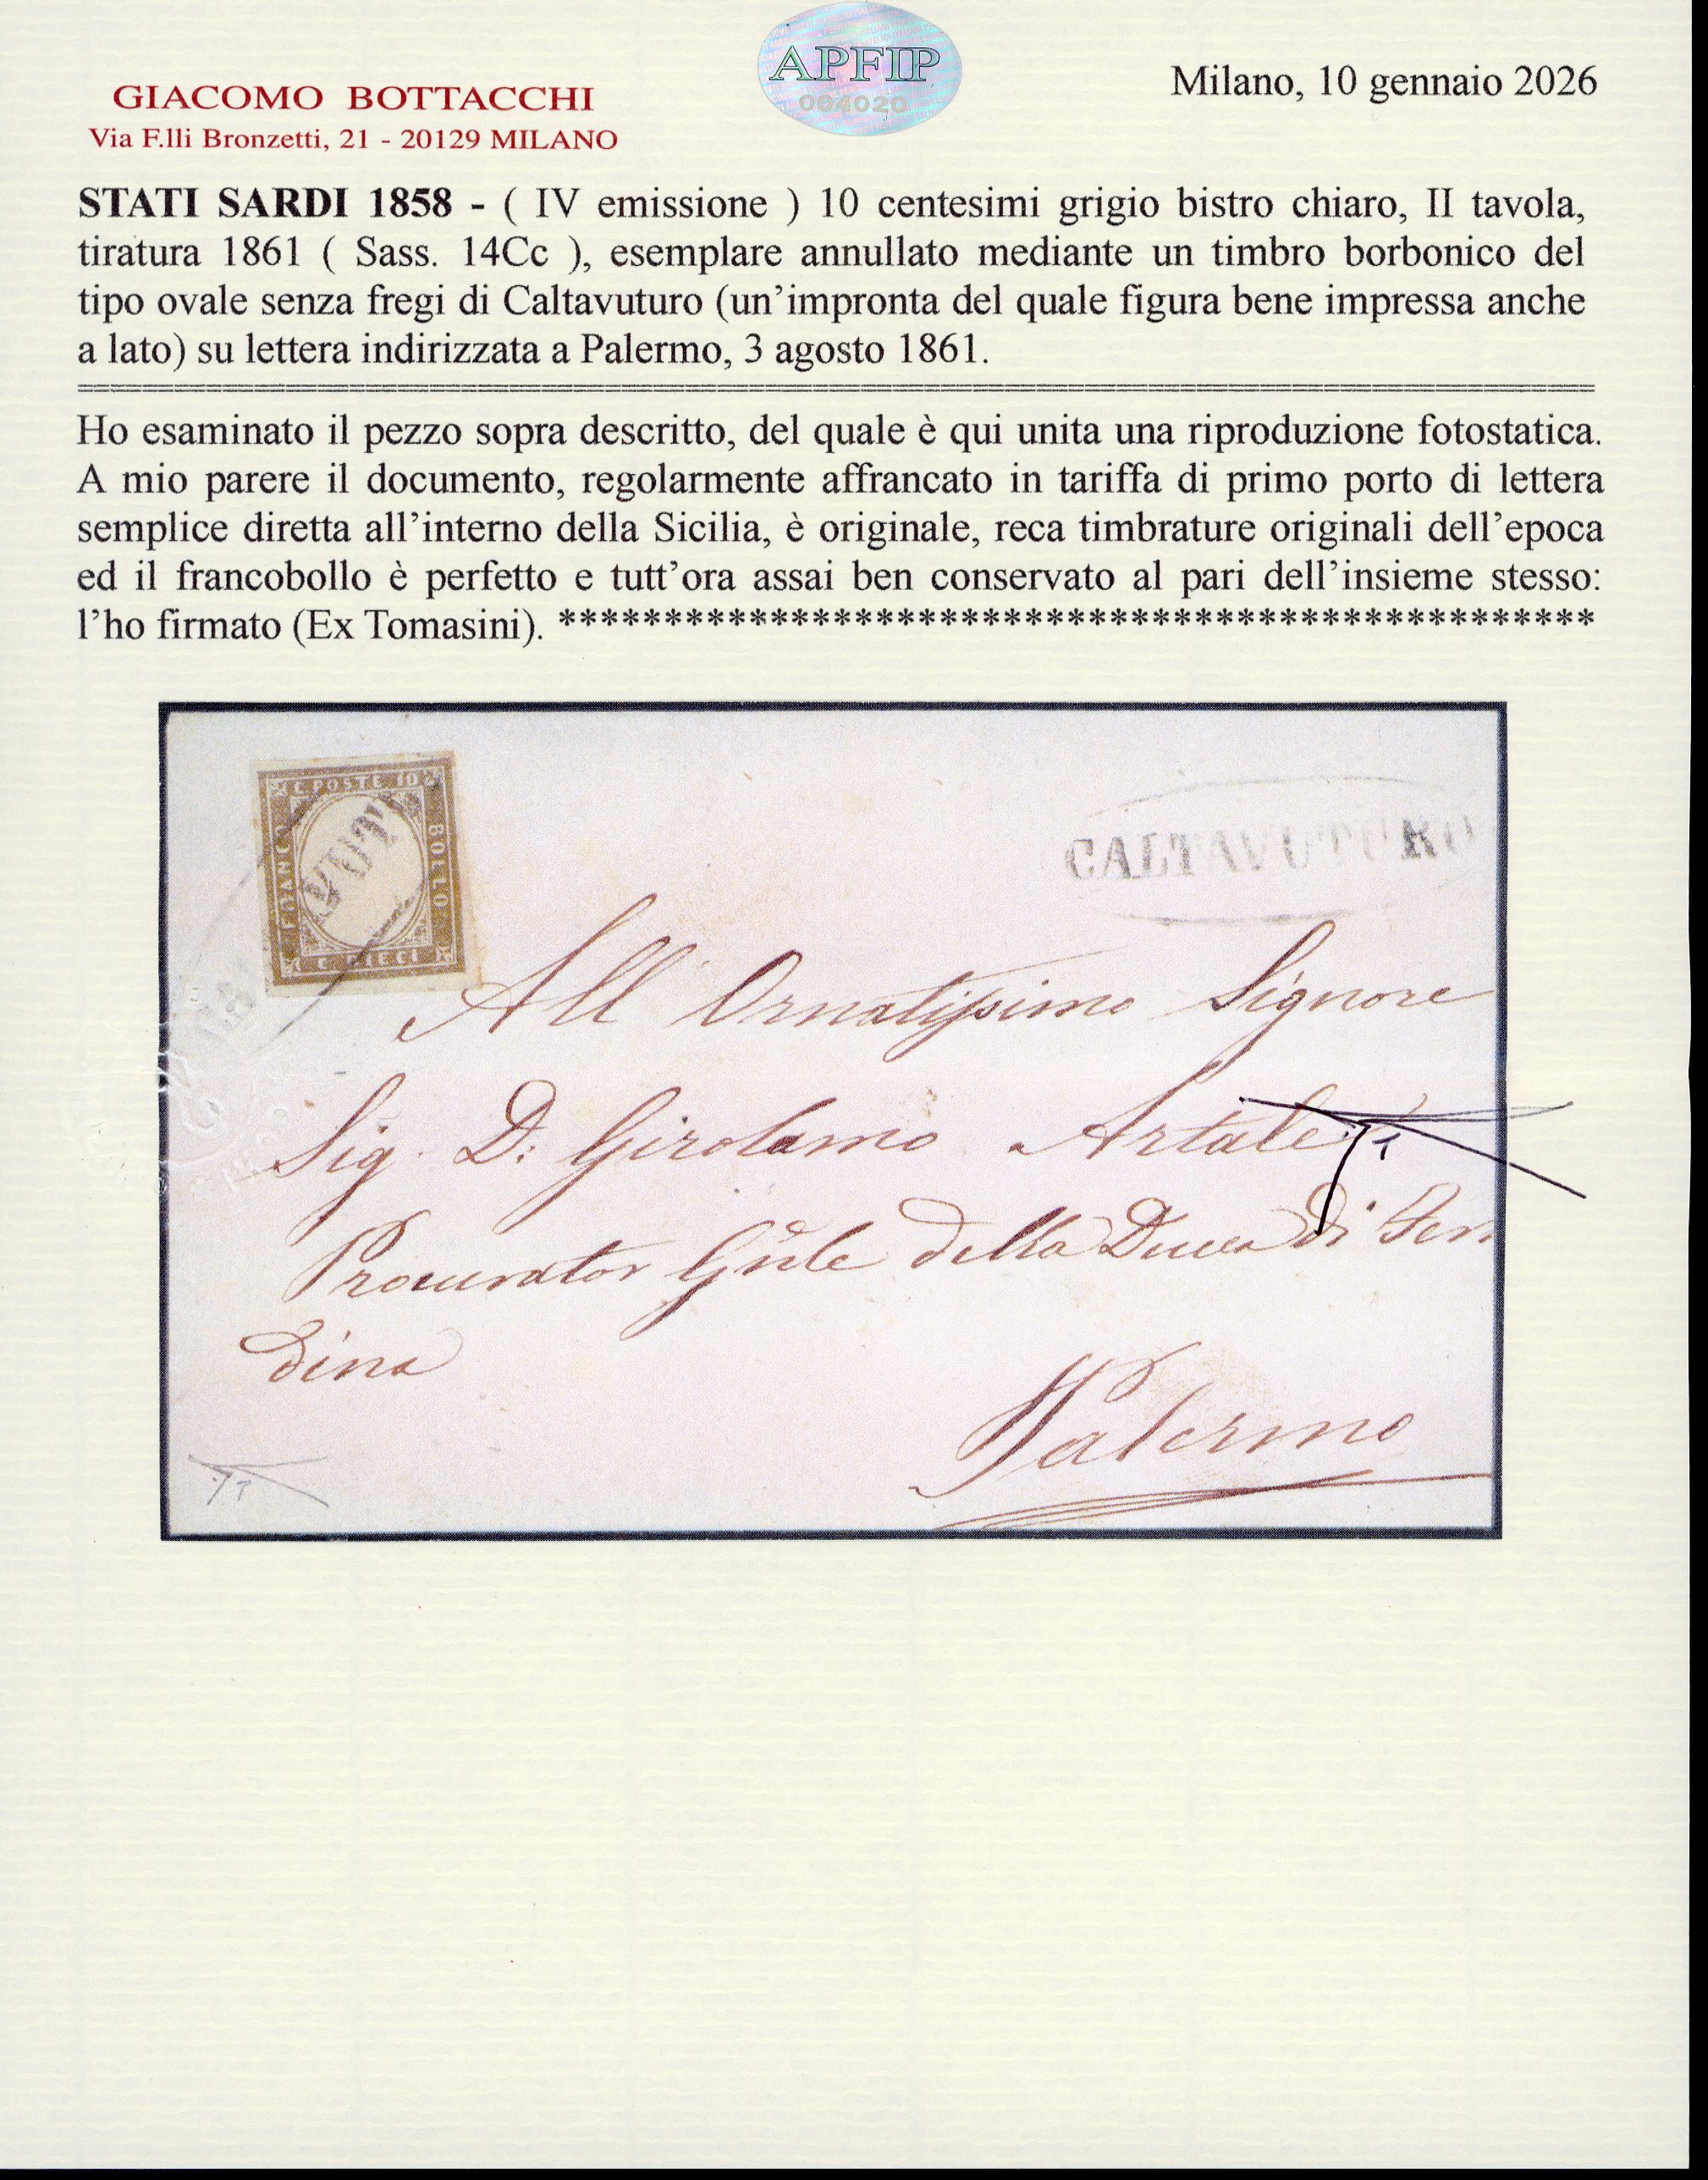 APFIP
004020
GIACOMO BOTTACCHI
Via F.lli Bronzetti, 21 - 20129 MILANO
Milano, 10 gennaio 2026
STATI SARDI 1858 - ( IV emissione ) 10 centesimi grigio bistro chiaro, II tavola,
tiratura 1861 ( Sass. 14Cc ), esemplare annullato mediante un timbro borbonico del
tipo ovale senza fregi di Caltavuturo (un'impronta del quale figura bene impressa anche
a lato) su lettera indirizzata a Palermo, 3 agosto 1861.
Ho esaminato il pezzo sopra descritto, del quale è qui unita una riproduzione fotostatica.
A mio parere il documento, regolarmente affrancato in tariffa di primo porto di lettera
semplice diretta all'interno della Sicilia, è originale, reca timbrature originali dell'epoca
ed il francobollo è perfetto e tutt'ora assai ben conservato al pari dell'insieme stesso:
l'ho firmato (Ex Tomasini). *************************************************
C. POSTE 10
FRANCO
BOLLO
C. DIECI
VUT
CALTAVUTURO
All Ornatissimo Signore
Sig. D: Girolamo Artale
Procurator Gñle della Duca di Fer
dina
Palermo